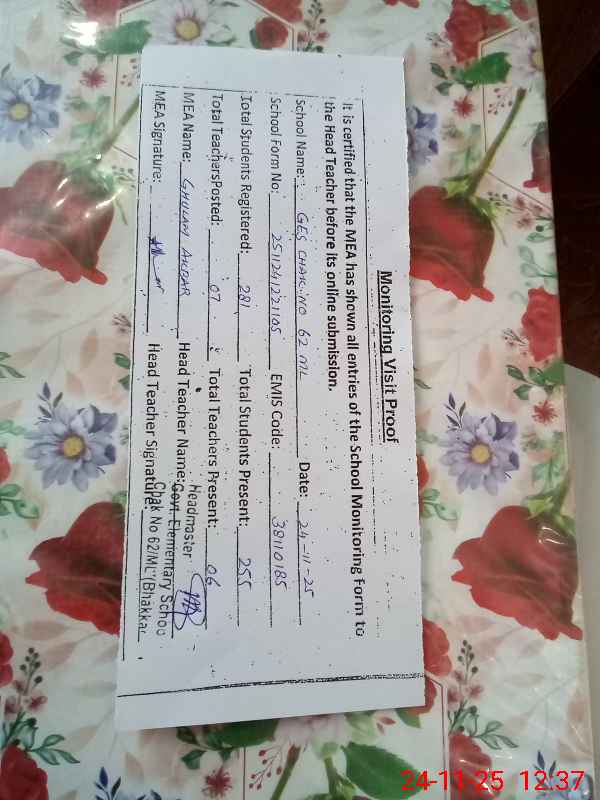 Monitoring Visit Proof
It is certified that the MEA has shown all entries of the School Monitoring Form to
the Head Teacher before its online submission.
School Name: GES CHAK NO 62 ML Date: 24-11-25
School Form No: 2511241221105 EMIS Code: 38110185
Total Students Registered: 281 Total Students Present: 255
Total Teachers Posted: 07 Total Teachers Present: 06
MEA Name: GHULAM AKBAR Head Teacher Name:
Headmaster
Govt. Elementary Schoo
MEA Signature: Head Teacher Signature:
Chak No 62/ML (Bhakkar
24-11-25 12:37